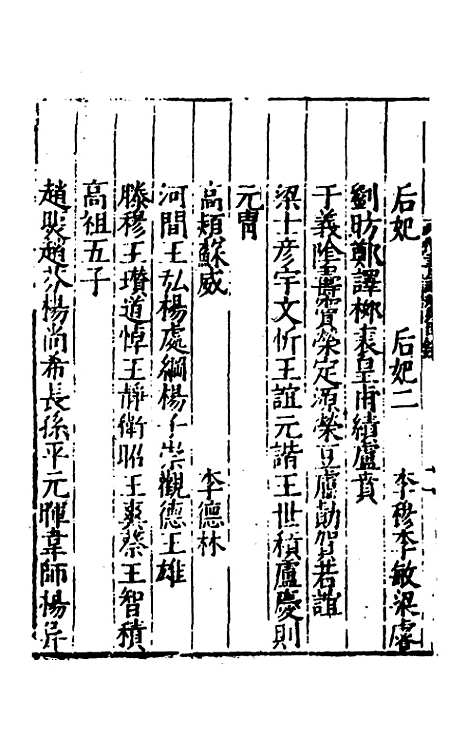 后妃 后妃二 李穆李敏梁睿
劉昉鄭譯柳裘皇甫績盧賁
于義陰壽竇榮定源榮豆盧勣賀若誼
梁士彦宇文忻王誼元諧王世積盧慶則
元冑
高熲蘇威 李德林
河間王弘楊處綱楊子崇觀德王雄
滕穆王瓚道悼王靜衛昭王爽蔡王智積
高祖五子
趙煚趙芬楊尚希長孫平元暉韋師楊异